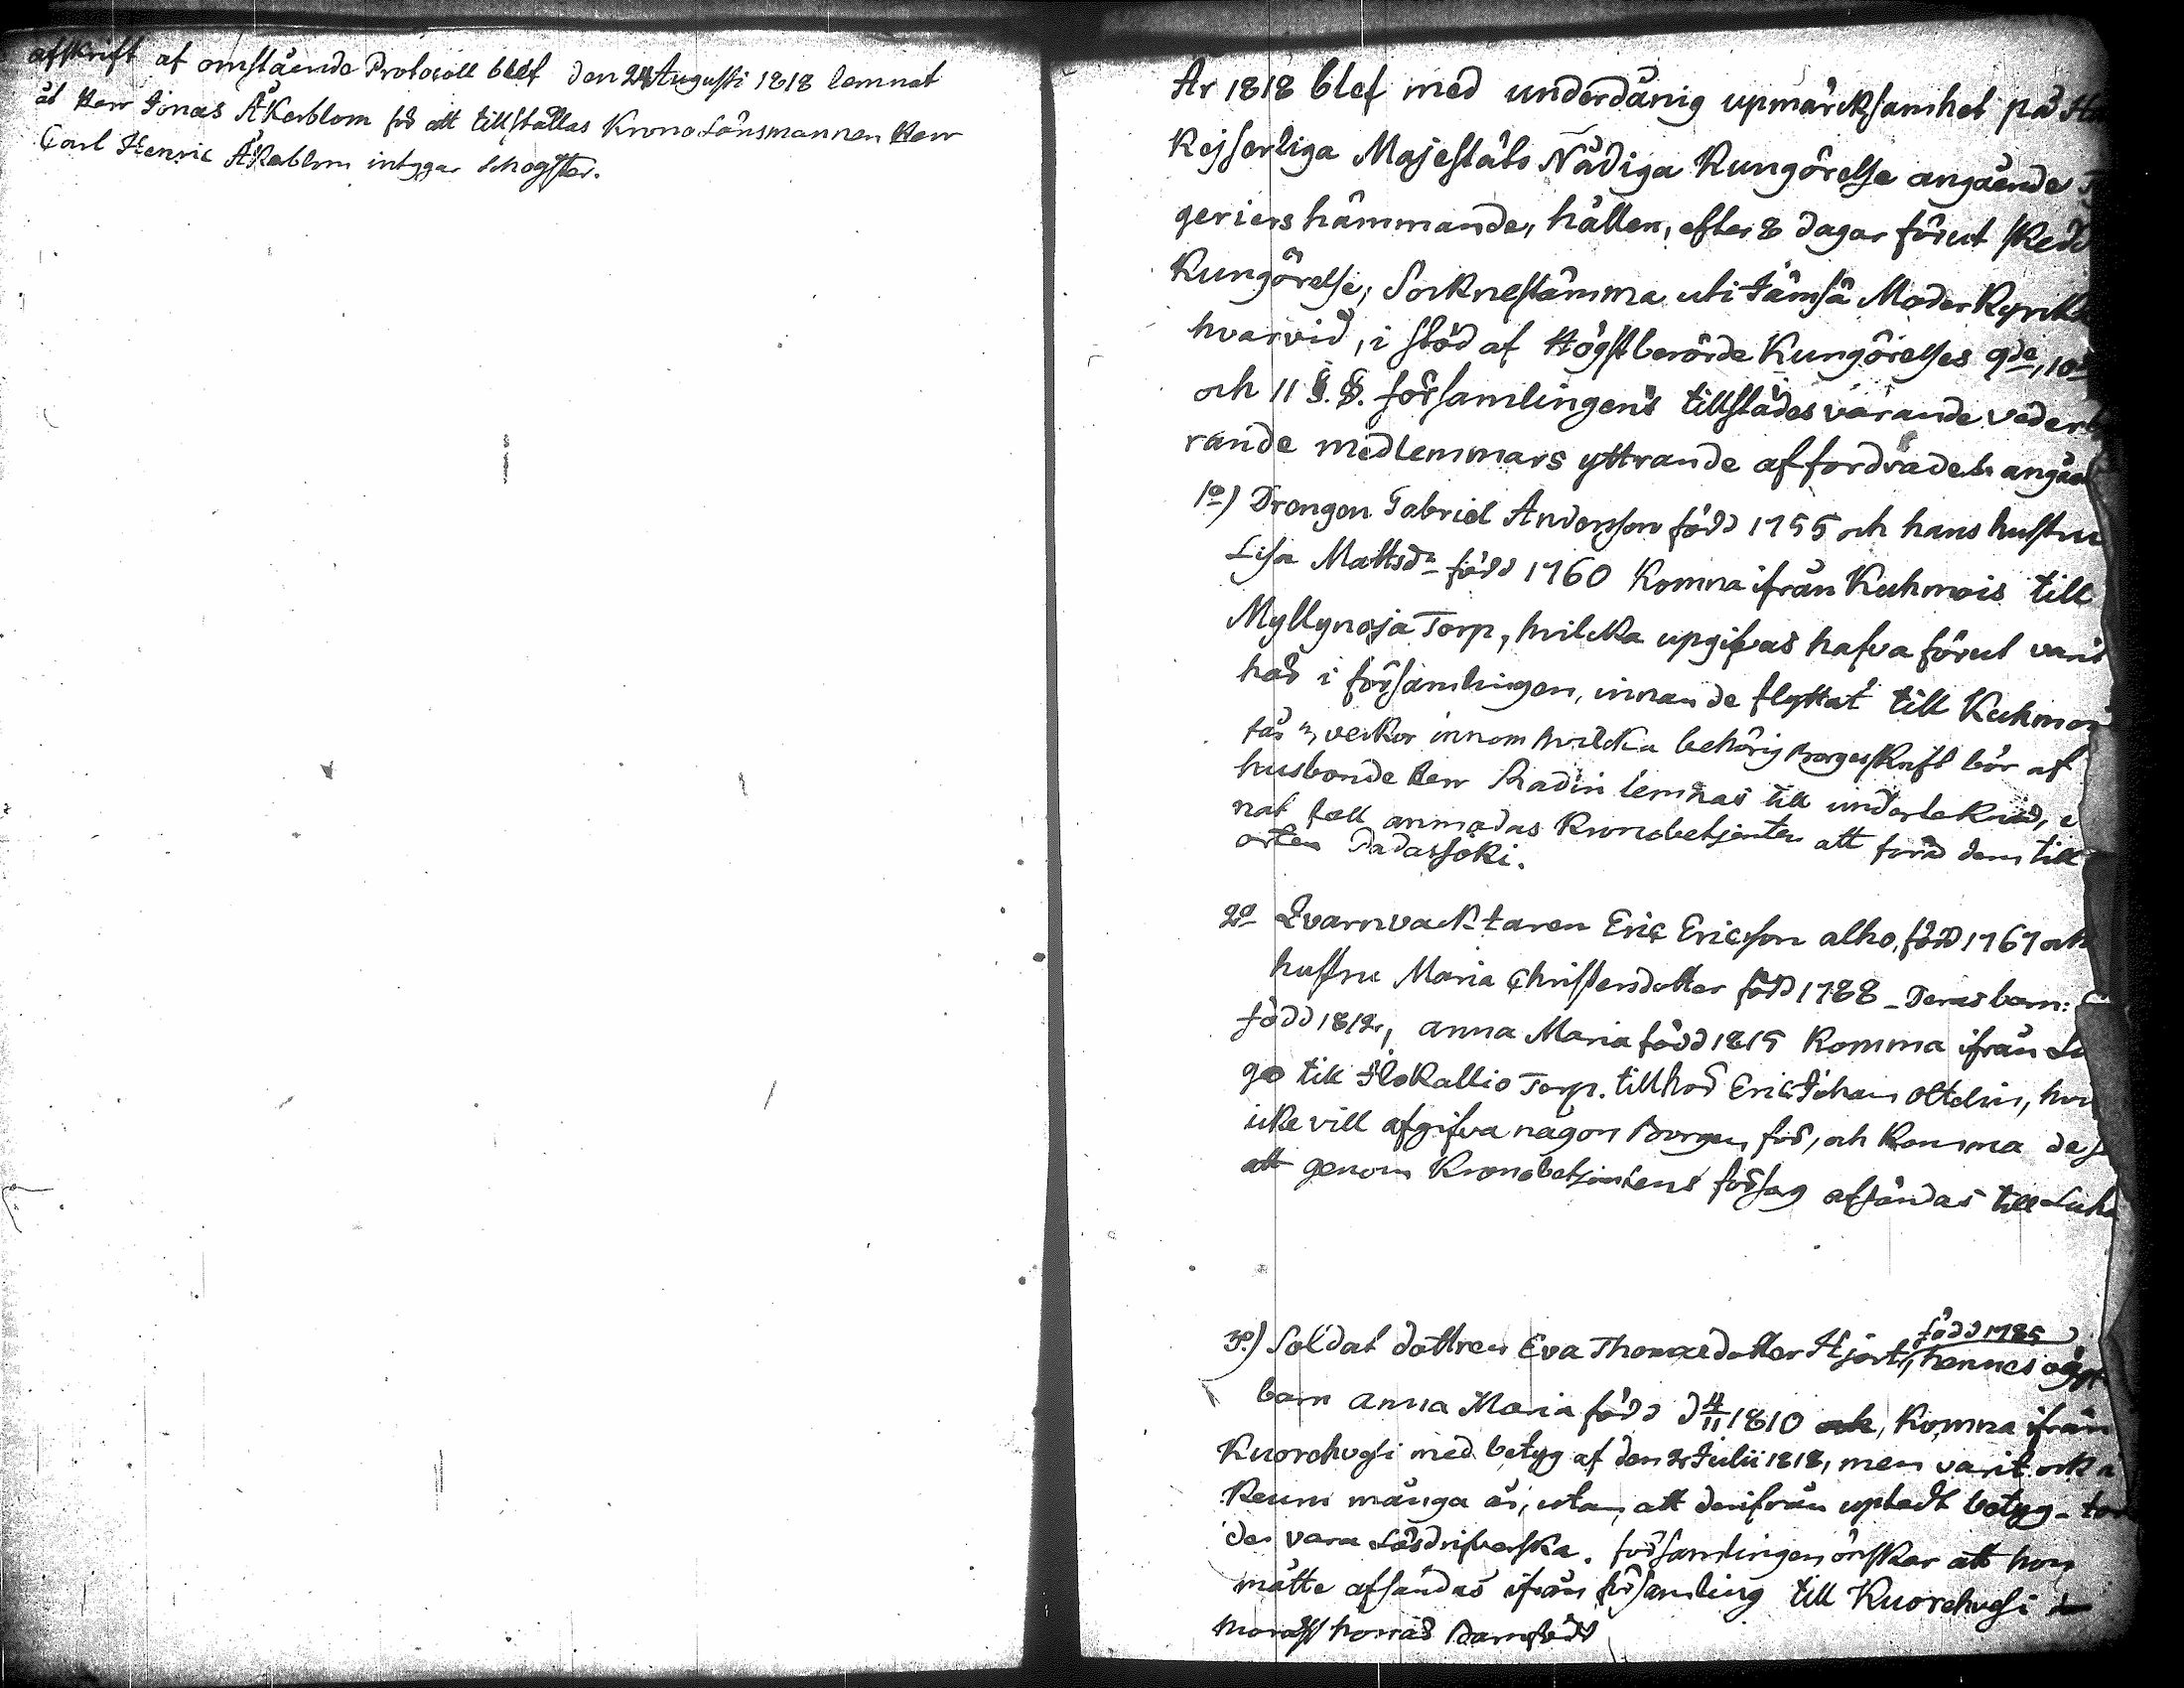 afskrift af omstående Protocoll blef den 24 Augusti 1818 lemnat
åt Herr Jonas Åkerblom för att tillställas Krono Länsmannen Herr
Carl Henric Åkerblom intygar
År 1818 blef med underdånig upmärcksamhet på
Kejserliga Majestäts Nådiga Kungörelse angående
geriers hämmande, hållen, efter 8 dagar förut
Kungörelse, Socknestämma uti Jämsä Moder Kyrka
hvarvid, i stöd af Högstberörde Kungörelses 9de, 10de
och 11 §. §. församlingens tillstädesvarande
rande medlemmars yttrande affordrades
1o) Drengen Gabriel Andersson född 1755 och hans hustru
Lisa Mattsdr född 1760 Komna ifrån Kuhmois till
Myllynoja Torp, hvilcka upgifvas hafva förut varit
här i församlingen, innan de flyttat till
veckor innom hvilcka behörig Borgesskrift bör af
husbonde Herr lemnas till
nat fall anmodas Kronobetjenten att föra dem till
orten Padasjoki.
2o Qvarnvacktaren Eric Ericsson alho, född 1767 och
hustru Maria Christersdotter född 1788 - Deras barn:
född 1812, anna Maria född 1815 Komma ifrån
go till Ilokallio Torp. tillhör Eric Johan Ottelin,
icke vill afgifva någon Borgen för, och Komma
att genom Kronobetjentens försorg afsändas till
född 1785
3o) Soldat dottren Eva Thomasdotter Hjort, hennes
barn anna Maria född d 4/11 1810 och, Komna ifrån
Kuorehvesi med betyg af den 2 Julii 1818, men varit ock i
Keuru många år, utan att derifrån uptedt betyg -
der vara Lösdrifverska. församlingen önskar att hon
måtte afsändas ifrån församling till Kuorehvesi
hon är Barnfödd